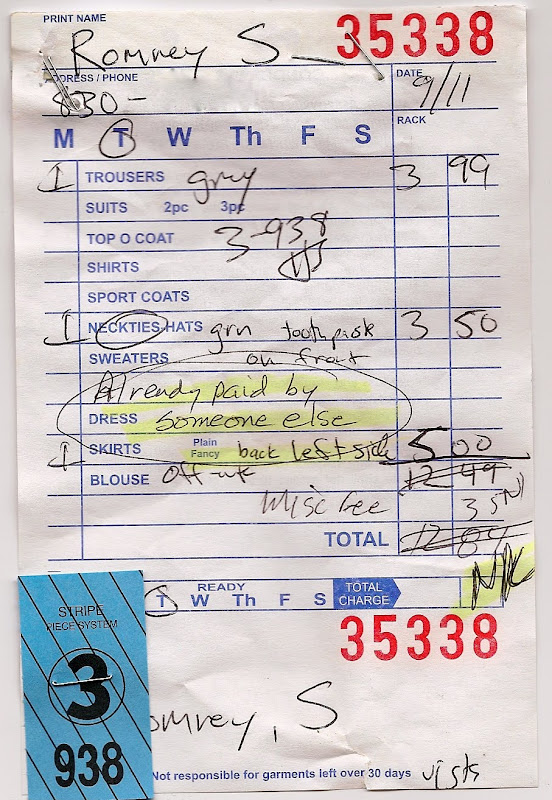 PRINT NAME 35338
Romney S
ADDRESS / PHONE DATE 9/11
830-
M T W Th F S RACK
1 TROUSERS grey 3 99
SUITS 2pc 3pc
TOP O COAT 3-938
SHIRTS
SPORT COATS
1 NECKTIES-HATS grn toothpaste 3 50
SWEATERS on front
Already paid by
DRESS someone else
1 SKIRTS Plain Fancy back left side 5 00
BLOUSE Off-wt 12 49
Misc fee 35
TOTAL 12 84
READY
T W Th F S TOTAL CHARGE
35338
STRIPE
PIECE SYSTEM
3
938
Romney, S
Not responsible for garments left over 30 days